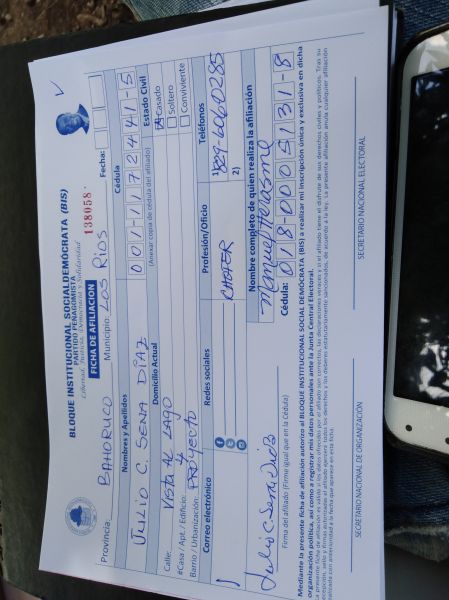 BLOQUE INSTITUCIONAL SOCIALDEMÓCRATA (BIS)
PARTIDO PEÑAGOMISTA
Libertad, Justicia, Democracia y Solidaridad
FICHA DE AFILIACION 138058
Provincia: BAHORUCO Municipio: LOS RIOS Fecha:
Nombres y Apellidos Cédula
JULIO C. SENA DÍAZ 001-1172441-5
(Anexar copia de cédula del afiliado)
Domicilio Actual Estado Civil
Calle: VISTA AL LAGO Casado
#Casa / Apt. / Edificio: 4 Soltero
Barrio / Urbanización: PROYECTO Conviviente
Correo electrónico Redes sociales Profesión/Oficio Teléfonos
CHOFER 1) 829-6060285
2)
Nombre completo de quien realiza la afiliación
Manuel Herasme
Julio C. Sena Dios Cédula: 018-0005131-8
Firma del afiliado (Firme igual que en la Cédula)
Mediante la presente ficha de afiliación autorizo al BLOQUE INSTITUCIONAL SOCIAL DEMÓCRATA (BIS) a realizar mi inscripción única y exclusiva en dicha
organización política, así como a registrar mis datos personales ante la Junta Central Electoral.
SECRETARIO NACIONAL DE ORGANIZACIÓN SECRETARIO NACIONAL ELECTORAL